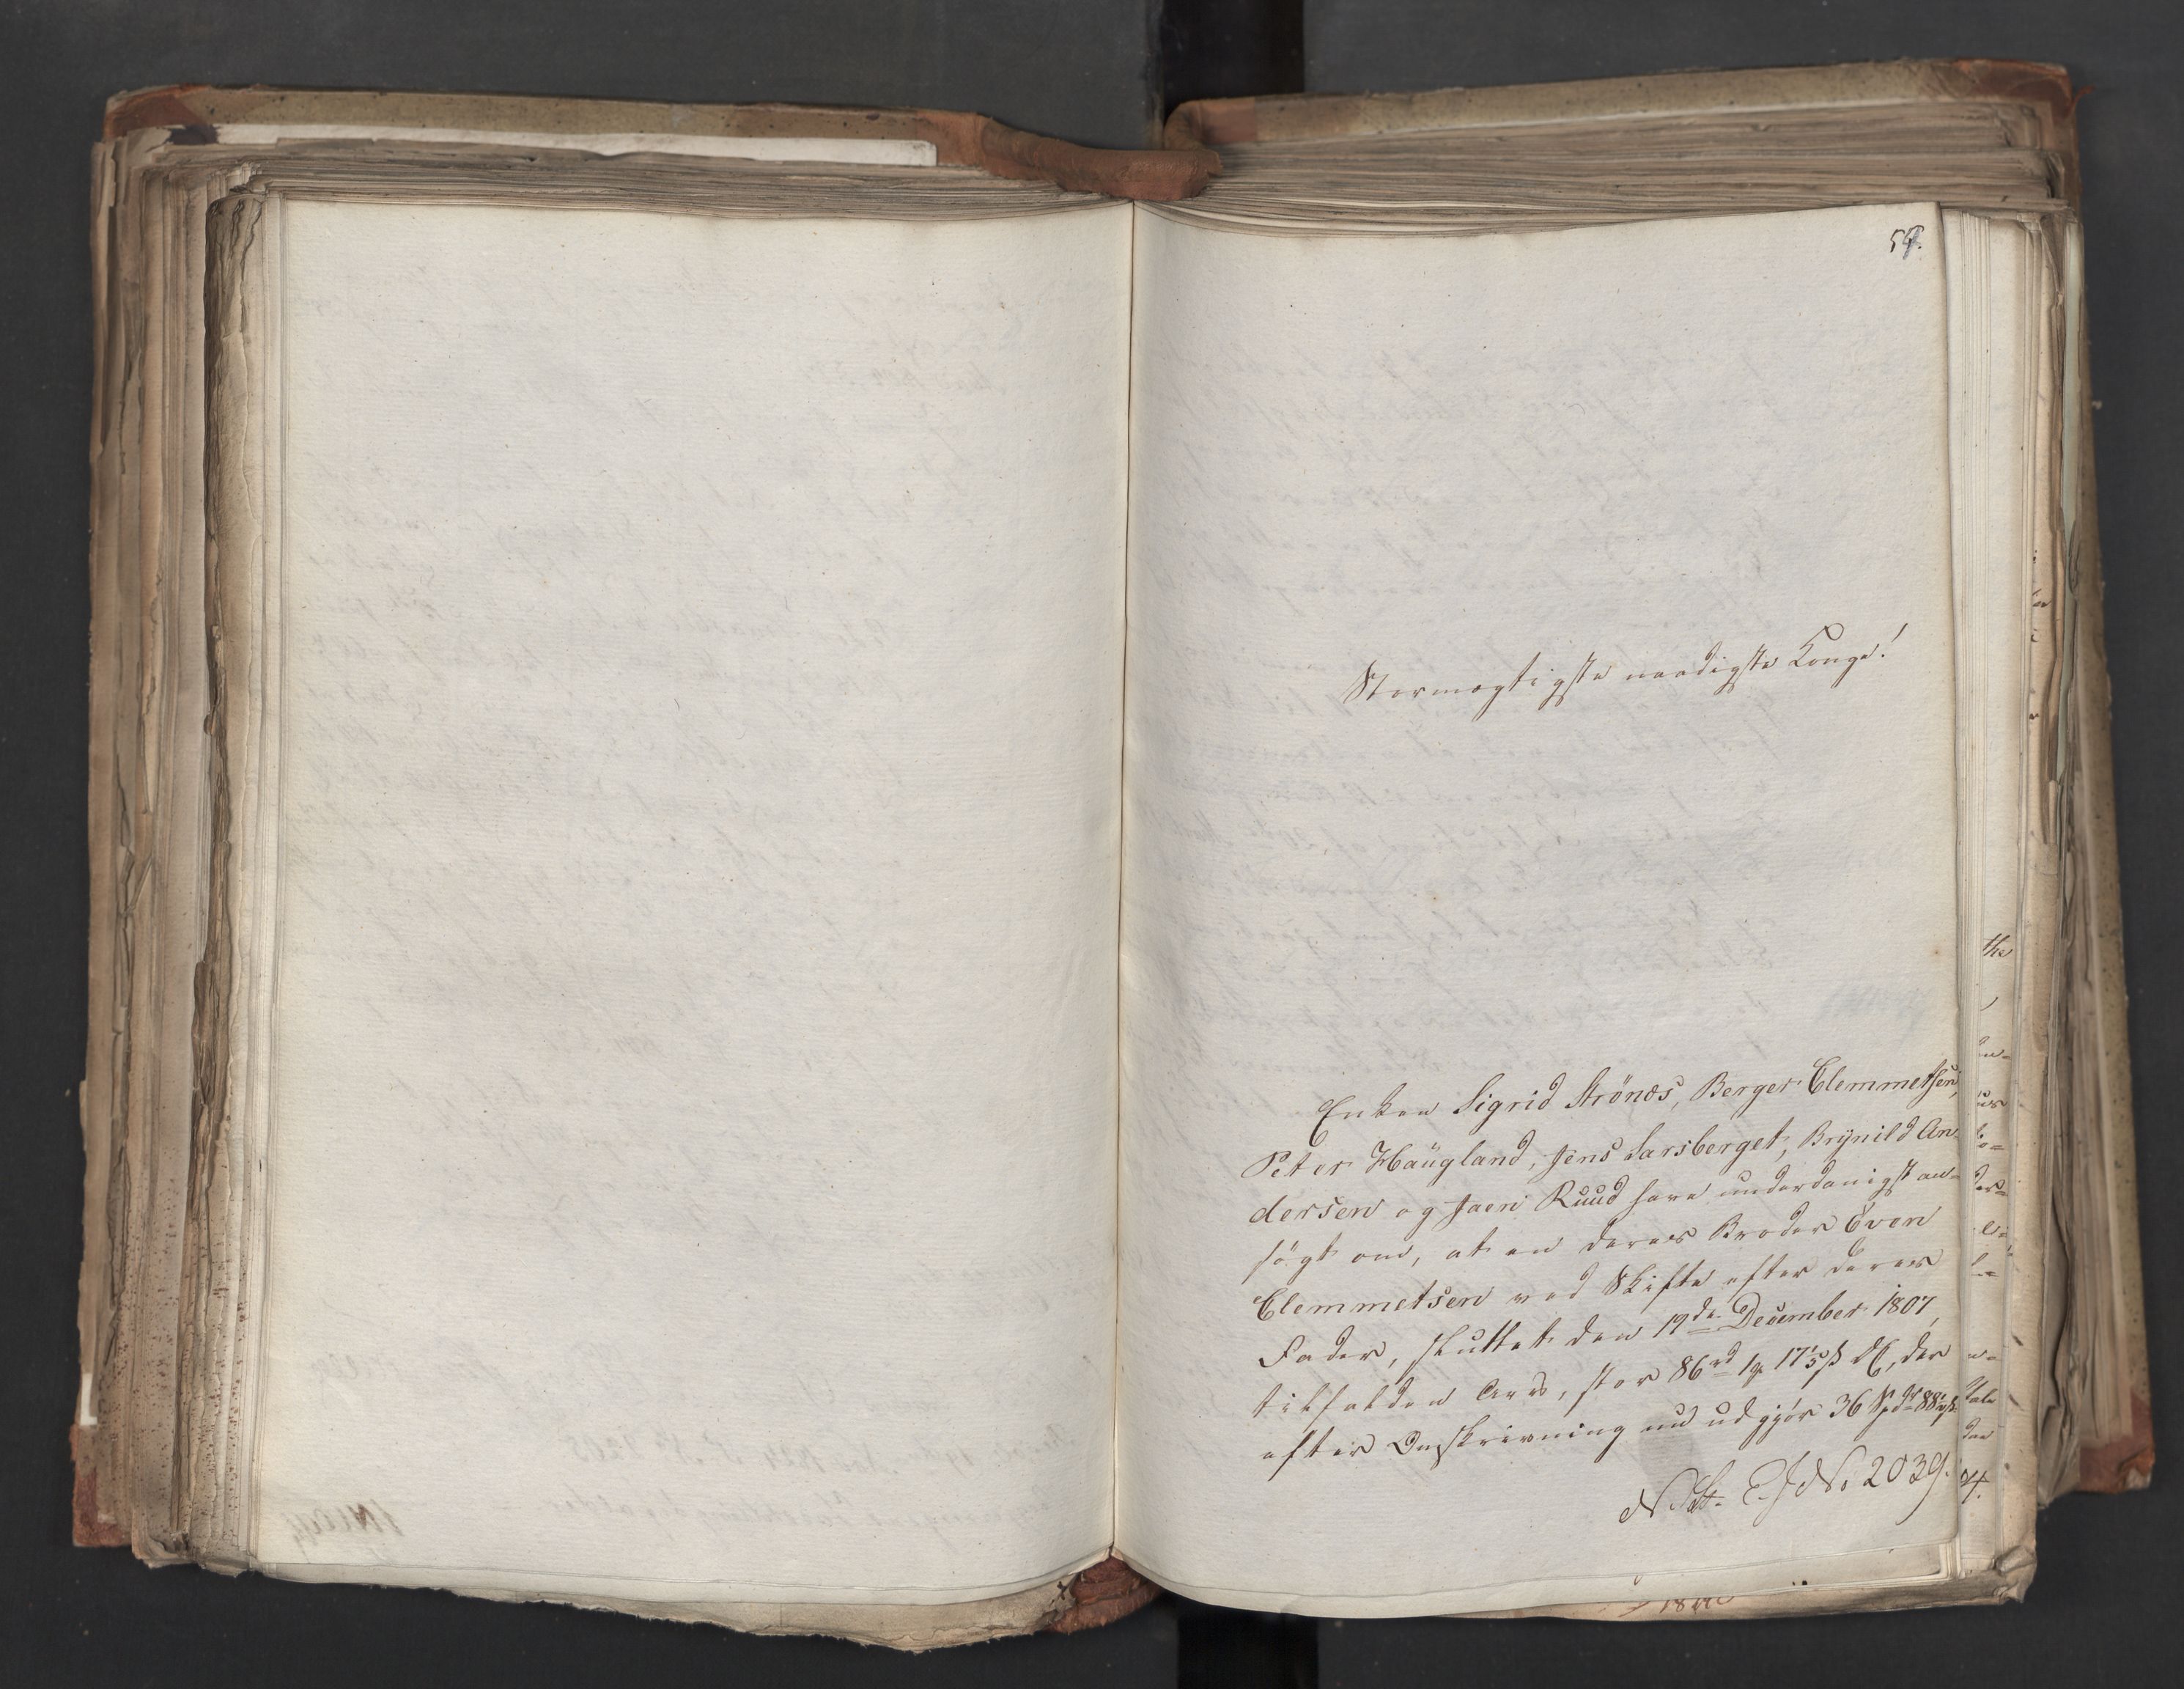 59.
Stormægtigste naadigste Konge!
Enken Sigrid Strönæs, Berger Clemmetsen,
Peter Haugland, Jens Larsberget, Brynild An-
dersen og Joen Ruud have underdanigst an-
søgt om, at en deres Broder Even
Clemmetsen ved Skifte efter deres
Fader, sluttet den 19de December 1807,
tilfalden Arv, stor 86rd 1 17 1/5 ß DC, der
efter Omskrivning nu udgjör 36 Spd 88 ß
No 2039.